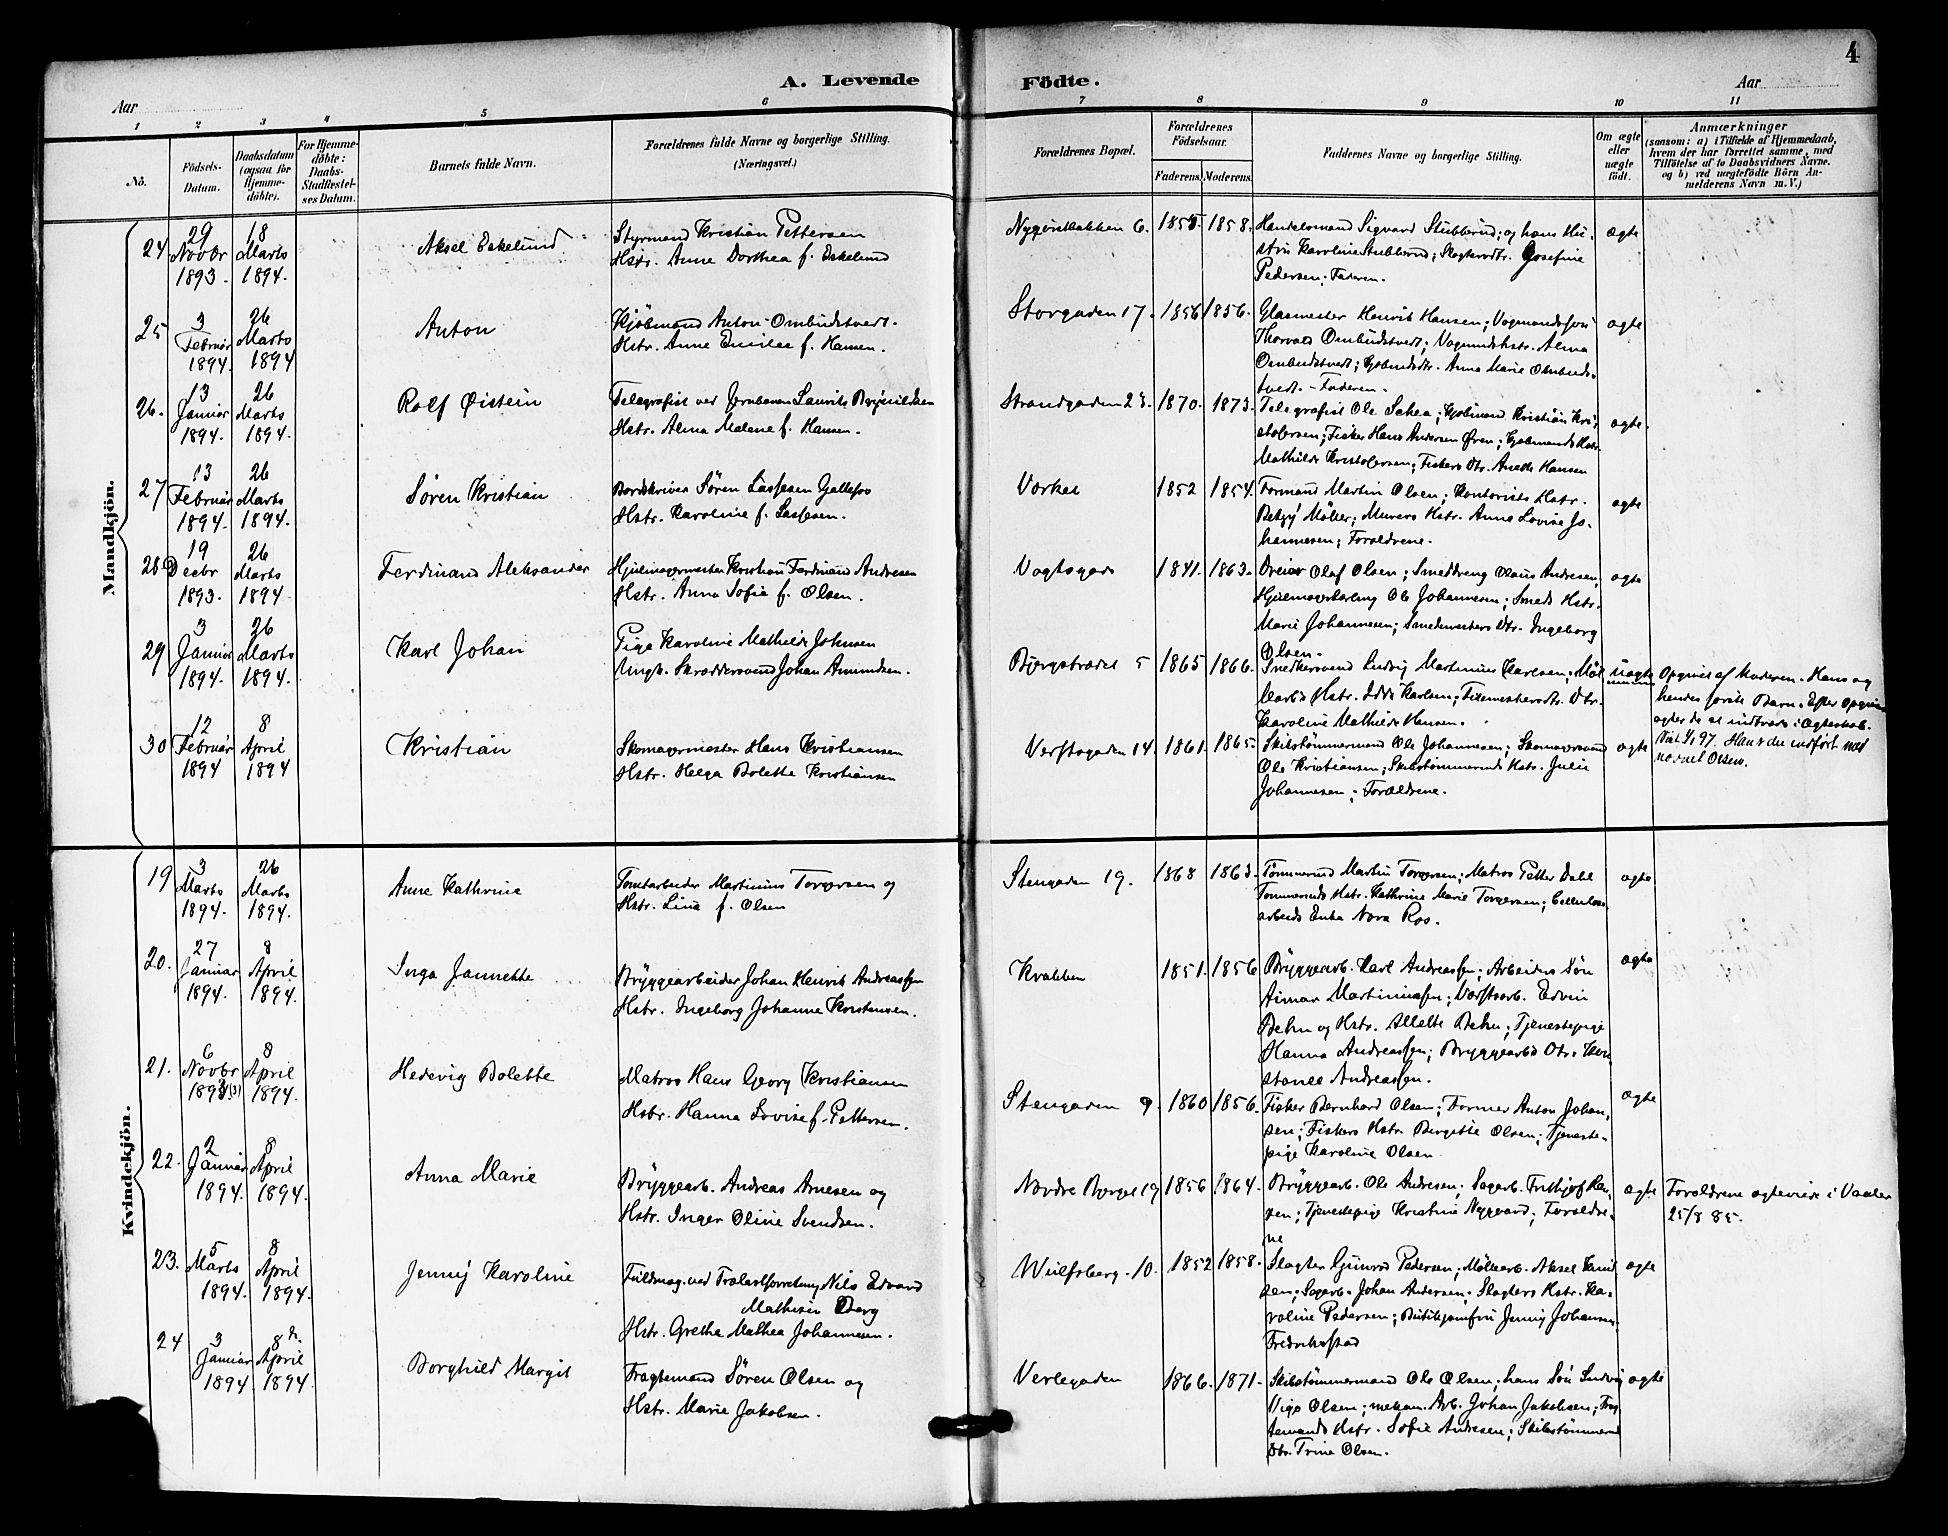 4
A. Levende Födte.
Aar
Aar
1 2 3 4 5 6 7 8 9 10 11
No.
Födsels-
Datum.
Daabsdatum
(ogsaa for
Hjemme-
döbte).
For Hjemme-
döbte:
Daabs-
Stadfæstel-
ses Datum.
Barnets fulde Navn.
Forældrenes fulde Navne og borgerlige Stilling.
(Næringsvei.)
Forældrenes Bopæl.
Forældrenes
Fødselsaar.
Faderens. Moderens.
Faddernes Navne og borgerlige Stilling.
Om ægte
eller
uægte
født.
Anmærkninger
(saasom: a) i Tilfælde af Hjemmedaab,
hvem der har forrettet samme, med
Tilföielse af to Daabsvidners Navne.
og b) ved uægtefödte Börn An-
melderens Navn m. V.)
Mandkjön.
24
29
Novbr
1893.
18
Marts
1894.
Aksel Eskelund
Styrmand Kristian Pettersen
Hstr. Anne Dorthea f. Eskelund
6. 1858.
Handelsmand Sigvard Stubberud; og hans Hu-
stru Karoline Stubberud; Slagtersdtr. Josefine
Pedersen; Faderen.
ægte
25
3
Februar
1894.
26
Marts
1894
Anton
Kjöbmand Anton Ombudstvedt.
Hstr. Anne Emilie f. Hansen.
Storgaden 17. 1856 1856.
Glasmester Henrik Hansen; Vognmandsfrou
Thorvald Ombudstvedt; Vognmandshstr. Alma
Ombudstvedt; Gbmdsdtr. Anna Marie Ombuds-
tvedt. - Faderen.
ægte
26.
13
Januar
1894.
26
Marts
1894.
Rolf Øistein
Telegrafist ved Jernbanen Laurits Brynildsen
Hstr. Alma Malene f. Hansen.
Strandgaden 23. 1870. 1873.
Telegrafist Ole Schea; Kjöbmand Kristian Kri-
stofersen; Fisker Hans Andersen Ören; Kjöbmands Hstr.
Mathilde Kristofersen; Fiskers Dtr. Anette Hansen
ægte.
27
13
Februar
1894.
26
Marts
1894.
Søren Kristian
Bordskriver Søren Lassesen Gallefos
Hstr. Karoline f. Lassesen.
Værket 1852 1854.
Formand Martin Olsen; Kontorists Hstr.
Betzy Möller; Murers Hstr. Anna Lovise Jo-
hannesen; Forældrene.
ægte
28
19
Decbr
1893.
26
Marts
1894.
Ferdinand Aleksander
Hjulmagermester Kristian Ferdinand Andresen
Hstr. Anna Sofie f. Olsen.
Vogtsgade 1841. 1863.
Dreier Olaf Olsen; Smeddreng Olaus Andresen;
Hjulmagerlærling Ole Johannesen; Smeds Hstr.
Marie Johannesen; Smedemesters Dtr. Ingeborg
Olsen.
ægte
29
3
Januar
1894.
26
Marts
1894.
Karl Johan
Pige Karoline Mathilde Johnsen
Ungk. Skræddersvend Johan Amundsen.
Bjergstrædet 5 1865 1866.
Snedkersvend Ludvig Martinius Karlsen; Möl-
learb's Hstr. Idda Karlsen; Dtr.
Karoline Mathilde Hansen.
uægte
Opgivet af Moderen. Hans og
hendes første Barn. Efter Opgivn
agter de at indtræde i Ægteskab.
97. Han er du indført med
navnet Olsen.
30
12
Februar
1894
8
April
1894
Kristian
Skomagermester Hans Kristiansen
Hstr. Helga Bolette Kristiansen
Verftsgaden 14. 1861. 1865.
Skibstømmermand Ole Johannesen; Skomagersvend
Ole Kristiansen; Skibstømmermds Hstr. Julie
Johannesen; Forældrene.
ægte
Kvindekjön.
19
3
Marts
1894.
26
Marts
1894.
Anne Kathrine
Tomtarbeider Martinius Torgersen og
Hstr. Lina f. Olsen
Stengaden 19. 1868 1863.
Tømmermd Martin Torgersen; Matros Petter Dahl
Tømmermds Hstr. Kathrine Marie Torgersen; Cellulose-
arbeids Enke Nora Roo.
ægte
20.
27
Januar
1894.
8
April
1894.
Inga Jannette
Bryggearbeider Johan Henrik Andreassen
Hstr. Ingeborg Johanne Kristensen.
Krabben 1851. 1856
Bryggearb. Karl Andreassen; Arbeiders Søn
Aimar Martiniussen; Værftsarb. Edvin
Behn og Hstr. Allette Behn; Tjenestepige
Hanna Andreassen; Bryggearbs Dtr. Kon-
stance Andreassen.
ægte
21.
6
Novbr
1893
8
April
1894.
Hedevig Bolette
Matros Hans Georg Kristiansen
Hstr. Hanna Lovise f. Pettersen.
Stengaden 9. 1860 1856.
Fisker Bernhard Olsen; Former Anton Johan-
sen; Fiskers Hstr. Bergette Olsen; Tjeneste-
pige Karoline Olsen.
ægte
22.
2
Januar
1894.
8
April
1894.
Anna Marie
Bryggearb. Andreas Arnesen og
Hstr. Inger Oline Svendsen.
Nordre Berget 19 1856 1864.
Bryggearb. Ole Andresen; Sagarb. Frithjof Han-
sen; Tjenestepige Kristine Nygaard; Forældre-
ne
ægte
Forældrene ægteviede i Vaaler
25/8 85.
23.
5
Marts
1894.
8
April
1894.
Jenny Karoline
Fuldmæg. ved Trælastforretning Nils Edvard
Mathisen Berg
Hstr. Grethe Mathea Johannesen.
Wulfsberg. 10. 1852 1858.
Slagter Gunerius Pedersen; Mölearb. Aksel Knud-
sen; Sagarb. Johan Andersen; Slagters Hstr. Ka-
roline Pedersen; Butikjomfru Jenny Johansen,
Fredrikstad
ægte
24
3
Januar
1894
8
April
1894.
Borghild Margit
Fragtemand Søren Olsen og
Hstr. Marie Jakobsen.
Verlegaden 1866. 1871.
Skibstømmermand Ole Olsen; hans Søn Ludvig
Vigo Olsen; mekan. Arb. Johan Jakobsen; Frag-
temands Hstr. Sofie Andresen; Skibstømmerm
Dtr. Trine Olsen.
ægte